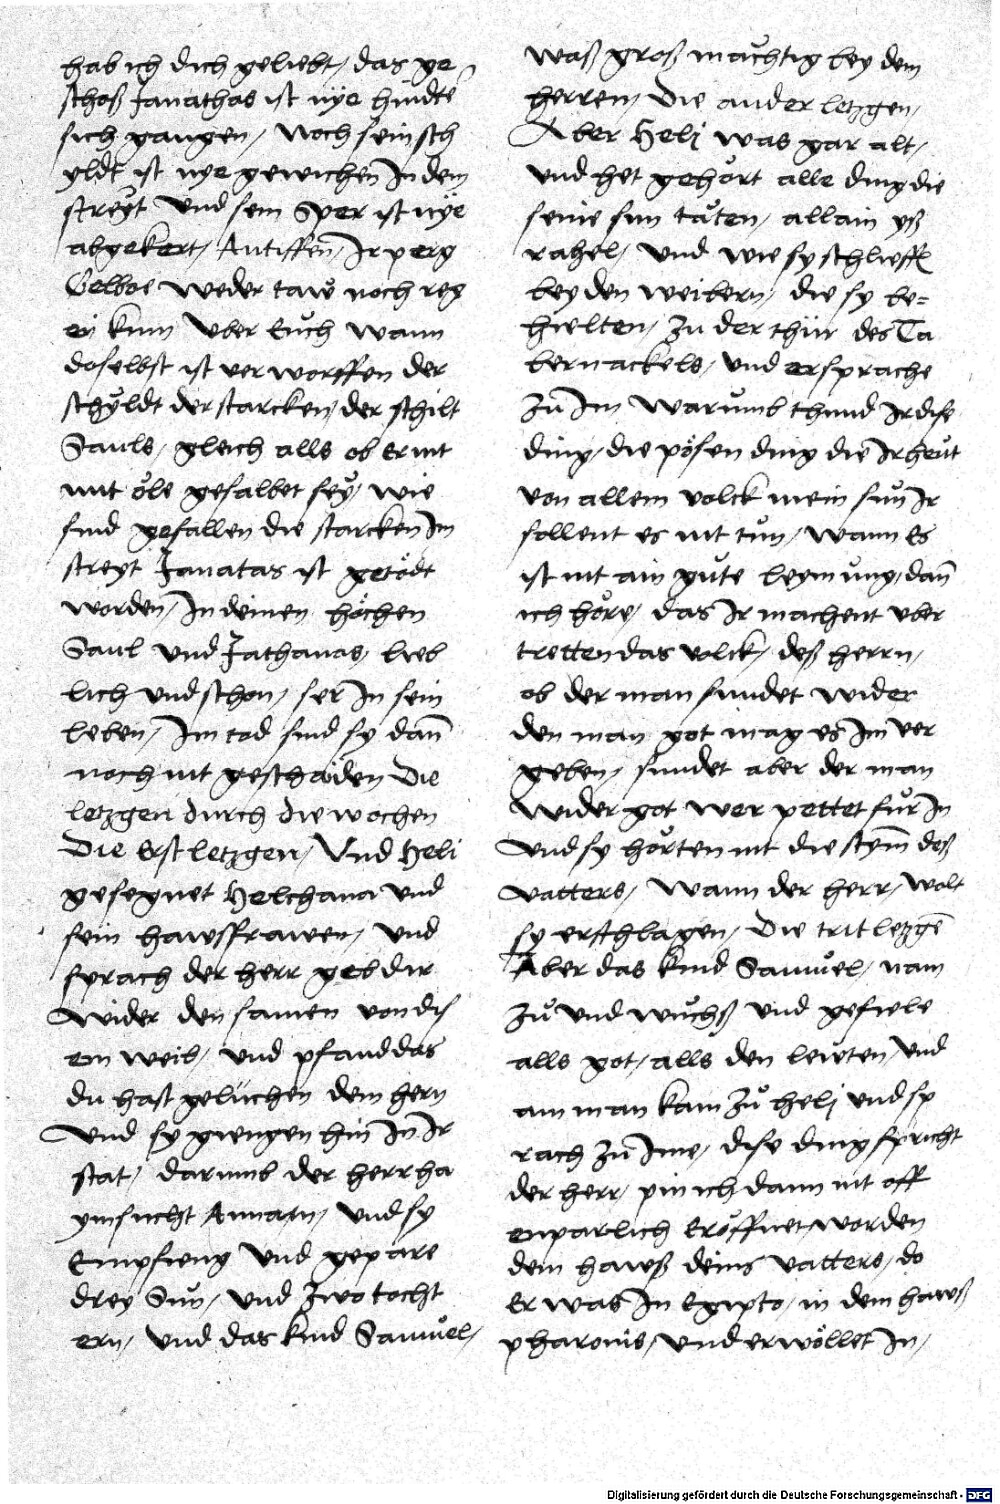 hab ich dich geliebt, das ge
schoß Janathas ist nye hindte
sich gangen, Noch sein sch
yldt ist nye gewichen In dem
streyt Vnd sein Sper ist nye
abgekert, Antiffen, Ir perg
Gelboe weder taw noch reg
en kum Vber Euch wann
doselbst ist verworffen der
schyldt der starcken, der schilt
Sauls, gleich alls ob er nit
mit öle gesalbet sey, wie
sind gefallen die starcken Im
streyt Janatas ist getödt
worden, In deinen höchen
Saul Vnd Jathanas, lieb
lich Vnd schon, ser In sein
leben, Im tod sind sy dañ
noch nit geschaiden Die
letzgen durch die wochen
Die Erst letzgen, Vnd Heli
gesegnet Helchana Vnd
sein hawssfrawen, Vnd
sprach der herr geb dir
Wider den samen von dis
em weib, Vnd pfand das
du hast gelüchen dem hern
Vnd sy giengen hin In Ir
stat, darumb der herr ha
ymsucht Annam, Vnd sy
Empfieng Vnd gepare
drey Sün, Vnd zwo tocht
ern, Vnd das kind Samuel,
waß groß mächtig bey dem
herren, Die ander letzgen,
Aber Helj was gar alt,
Vnd het gehört alle ding die
seine sun täten, allain yß
rahel, Vnd wie sy schlieffen
bey den weibern, die sy be=
hielten, zu der thür des Ta
bernackels, Vnd er sprache
zů Im Warumb thund Ir dise
ding, die pösen ding die Ir heüt
von allem volck mein sün Ir
sollent es nit tůn, wann Es
ist nit ain gůte leymůng, dañ
ich höre, das Ir machent vber
tretten das volck, deß herrn,
ob der man sundet wider
den man got mag es Im ver
geben, sundet aber der man
Wider got wer pettet für In
Vnd sy hörten nit die stym̄ deß
vatters, Wann der herr, wolt
sy erschlagen, Die trit letzgē
Aber das kind Samuel, nam
zů Vnd wůchß Vnd gefiele
alls got, alls den lewten, Vnd
ain man kam zů helj Vnd sp
rach zů Ime, dise ding spricht
der herr, pin ich dann nit off
enparlich Eröffnet worden
dem hawß deins vatters, do
Er was In Egipto, in dem hawß
pharonis, Vnd erwöllet In,
Digitalisierung gefördert durch die Deutsche Forschungsgemeinschaft - DFG